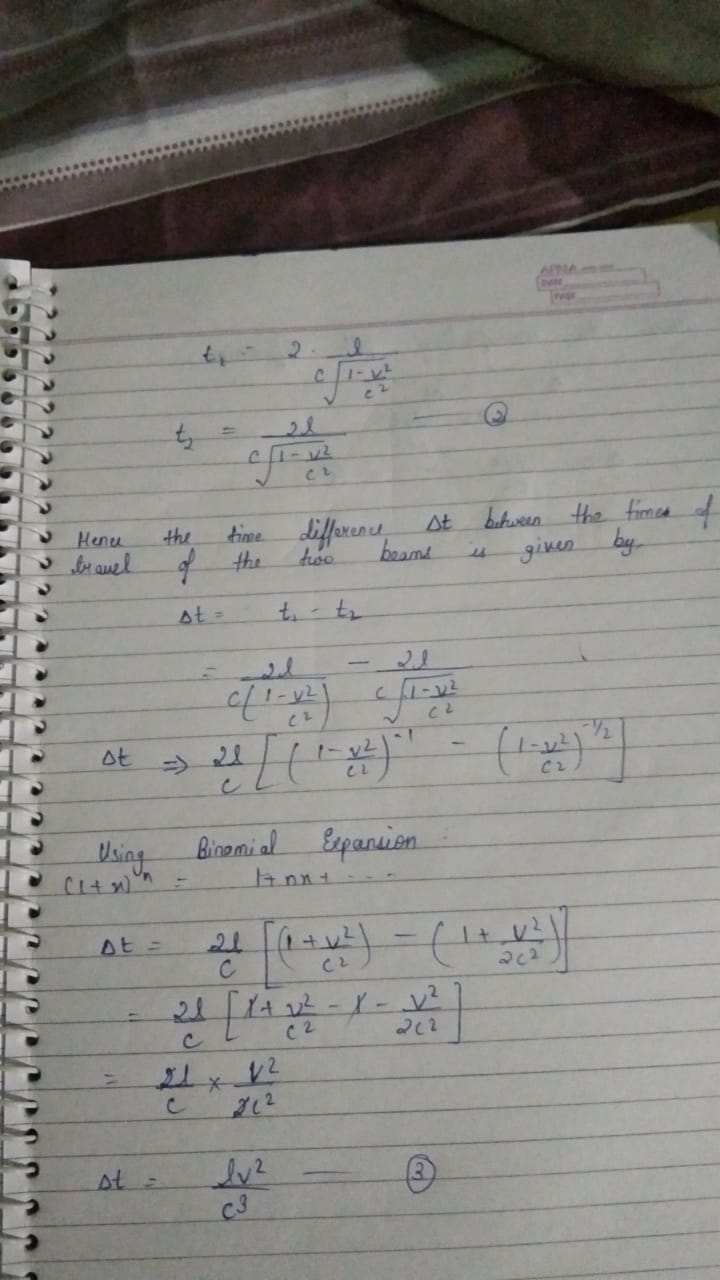 DATE
PAGE
t₁ = 2 · l / c√(1 - v²/c²)
t₂ = 2l / c√(1 - v²/c²) — ②
Hence the time difference Δt between the times of
travel of the two beams is given by
Δt = t₁ - t₂
= 2l / c(1 - v²/c²) - 2l / c√(1 - v²/c²)
Δt ⇒ 2l/c [(1 - v²/c²)⁻¹ - (1 - v²/c²)^(-1/2)]
Using Binomial Expansion :
(1+x)ⁿ = 1+nx+ ...
Δt = 2l/c [(1 + v²/c²) - (1 + v²/2c²)]
= 2l/c [1 + v²/c² - 1 - v²/2c²]
= 2l/c × v²/2c²
Δt = lv²/c³ — ③